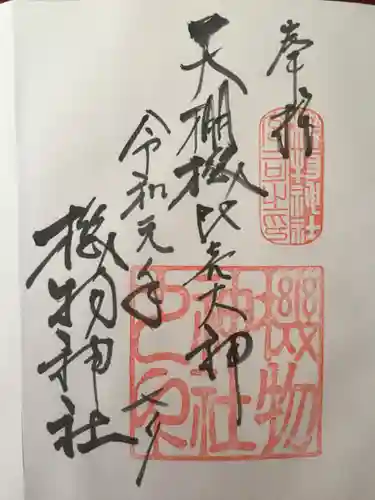 奉拝
天棚機比売大神
令和元年
七夕
機物神社
機物神社之印